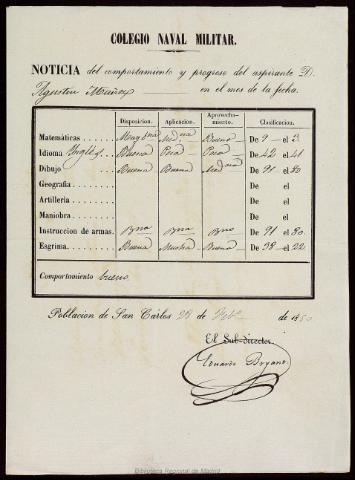 COLEGIO NAVAL MILITAR.
NOTICIA del comportamiento y progreso del aspirante D.
Agustin Muñoz en el mes de la fecha.
Disposicion. Aplicacion. Aprovechamiento. Clasificacion.
Matemáticas Buena De 9 el 2
Idioma Ynglés Buena Poca Poca De 42 el 41
Dibujo Buena Buena De 91 el 80
Geografía De el
Artillería De el
Maniobra De el
Instruccion de armas. Bna Bna Bna De 91 el 80
Esgrima Buena Mucha Buena De 38 el 22
Comportamiento bueno
Poblacion de San Cárlos 28 de Feb.o de 1850
El Sub-director.
Eduardo Bryant
Biblioteca Regional de Madrid